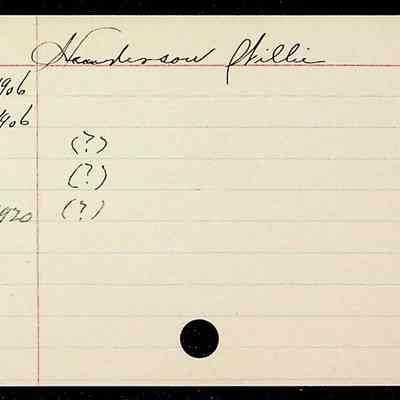 Haanderson Willie
1906
1906
(?)
(?)
1920 (?)